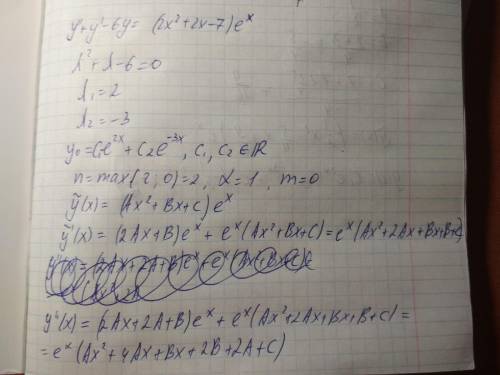 y''+y'-6y= (2x²+2x-7)eˣ
λ²+λ-6=0
λ₁=2
λ₂=-3
y₀=C₁e²ˣ+C₂e⁻³ˣ, C₁, C₂ ∈ ℝ
n=max(2,0)=2, α=1, m=0
ỹ(x)= (Ax²+Bx+C)eˣ
ỹ'(x)= (2Ax+B)eˣ+eˣ(Ax²+Bx+C)=eˣ(Ax²+2Ax+Bx+B+C)
y''(x)=(2Ax+2A+B)eˣ+eˣ(Ax²+2Ax+Bx+B+C)=
=eˣ(Ax²+4Ax+Bx+2B+2A+C)